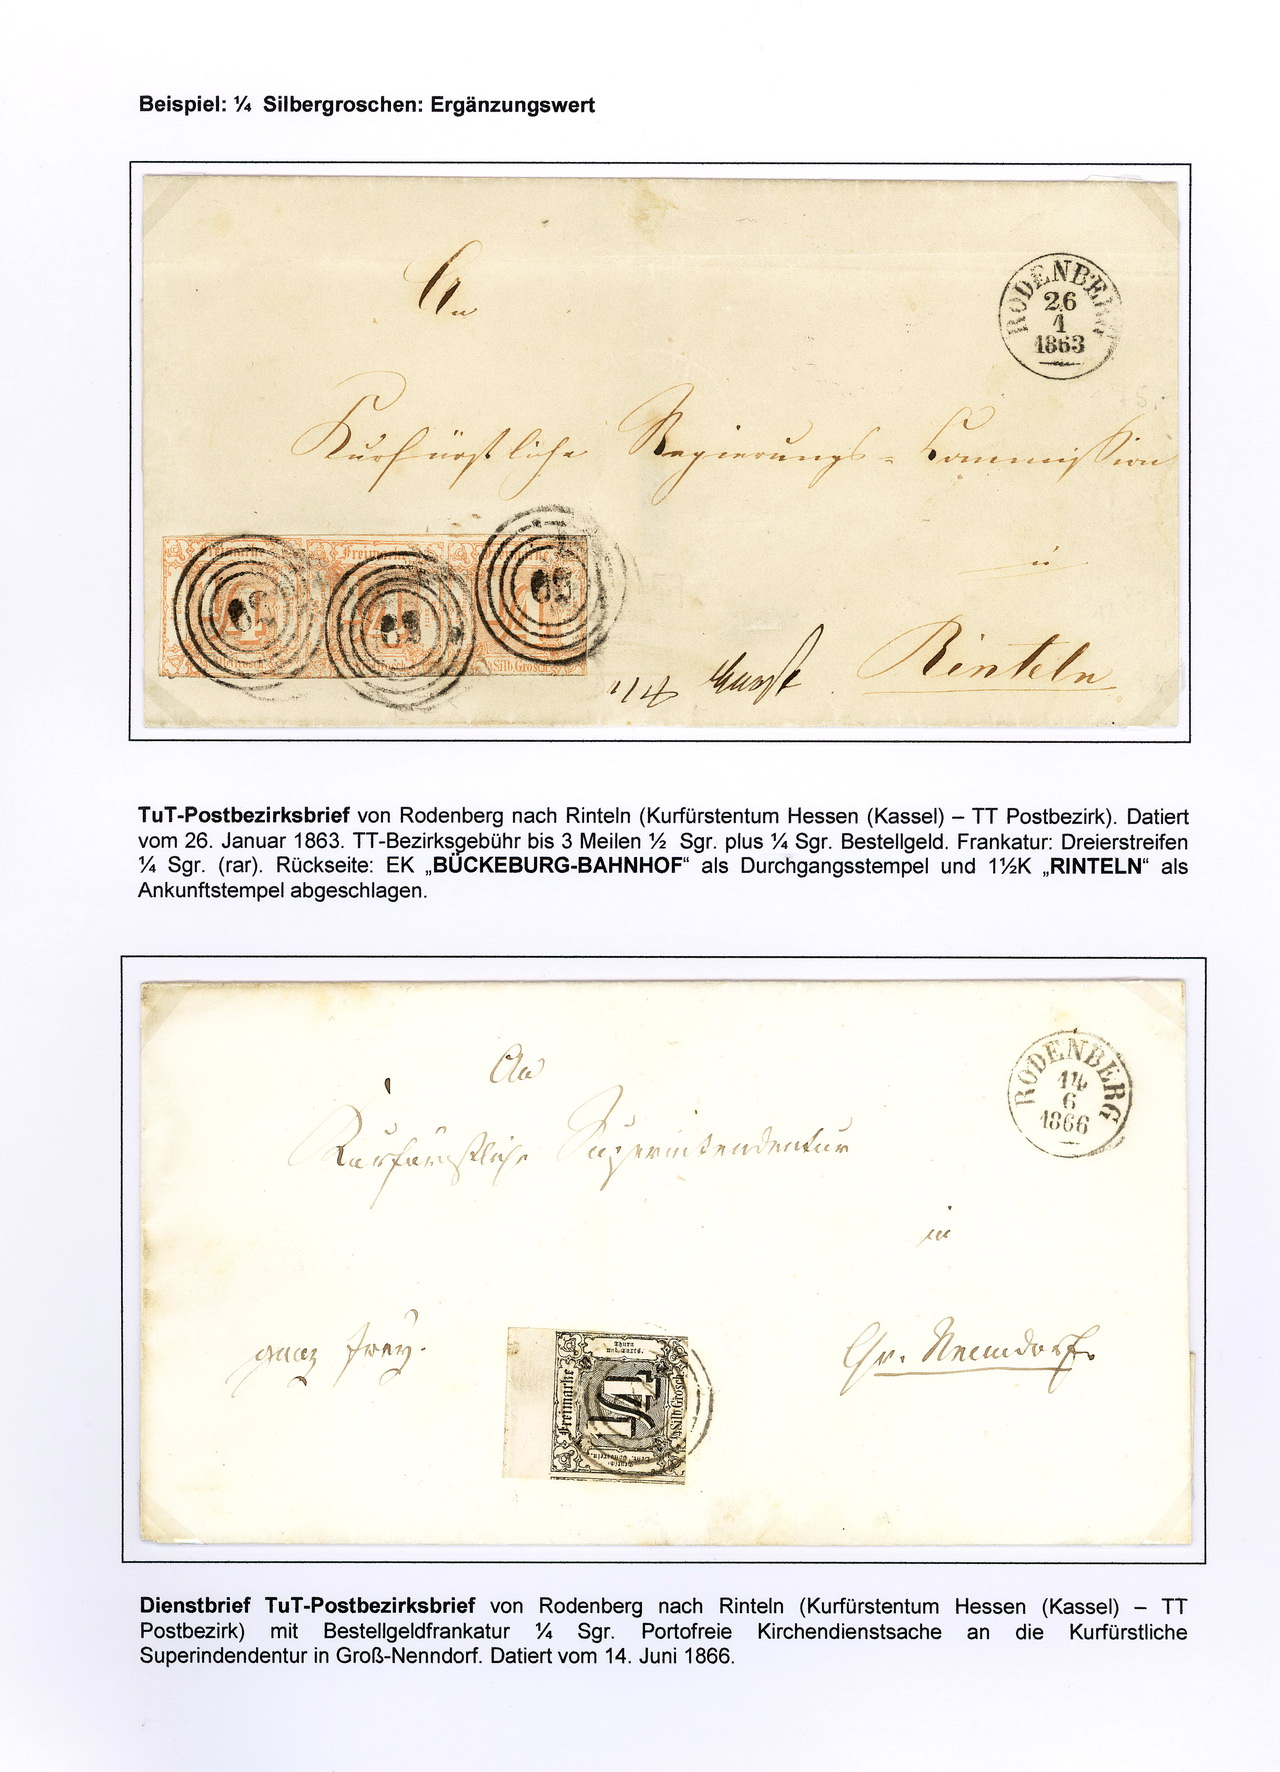 Beispiel: ¼ Silbergroschen: Ergänzungswert
An
RODENBERG
26
1
1863
Kurfürstliche Regierungs-Commission
Freimarke Freimarke Freimarke
Silb.Grosch
in
1/4
Rinteln
TuT-Postbezirksbrief von Rodenberg nach Rinteln (Kurfürstentum Hessen (Kassel) – TT Postbezirk). Datiert
vom 26. Januar 1863. TT-Bezirksgebühr bis 3 Meilen ½ Sgr. plus ¼ Sgr. Bestellgeld. Frankatur: Dreierstreifen
¼ Sgr. (rar). Rückseite: EK „BÜCKEBURG-BAHNHOF“ als Durchgangsstempel und 1½K „RINTELN“ als
Ankunftstempel abgeschlagen.
An
RODENBERG
14
6
1866
Kurfürstliche Superintendentur
in
ganz frey.
Gr. Nenndorf.
Thurn
und Taxis.
Freimarke
1/4
Silb.Grosch
Dienstbrief TuT-Postbezirksbrief von Rodenberg nach Rinteln (Kurfürstentum Hessen (Kassel) – TT
Postbezirk) mit Bestellgeldfrankatur ¼ Sgr. Portofreie Kirchendienstsache an die Kurfürstliche
Superindendentur in Groß-Nenndorf. Datiert vom 14. Juni 1866.